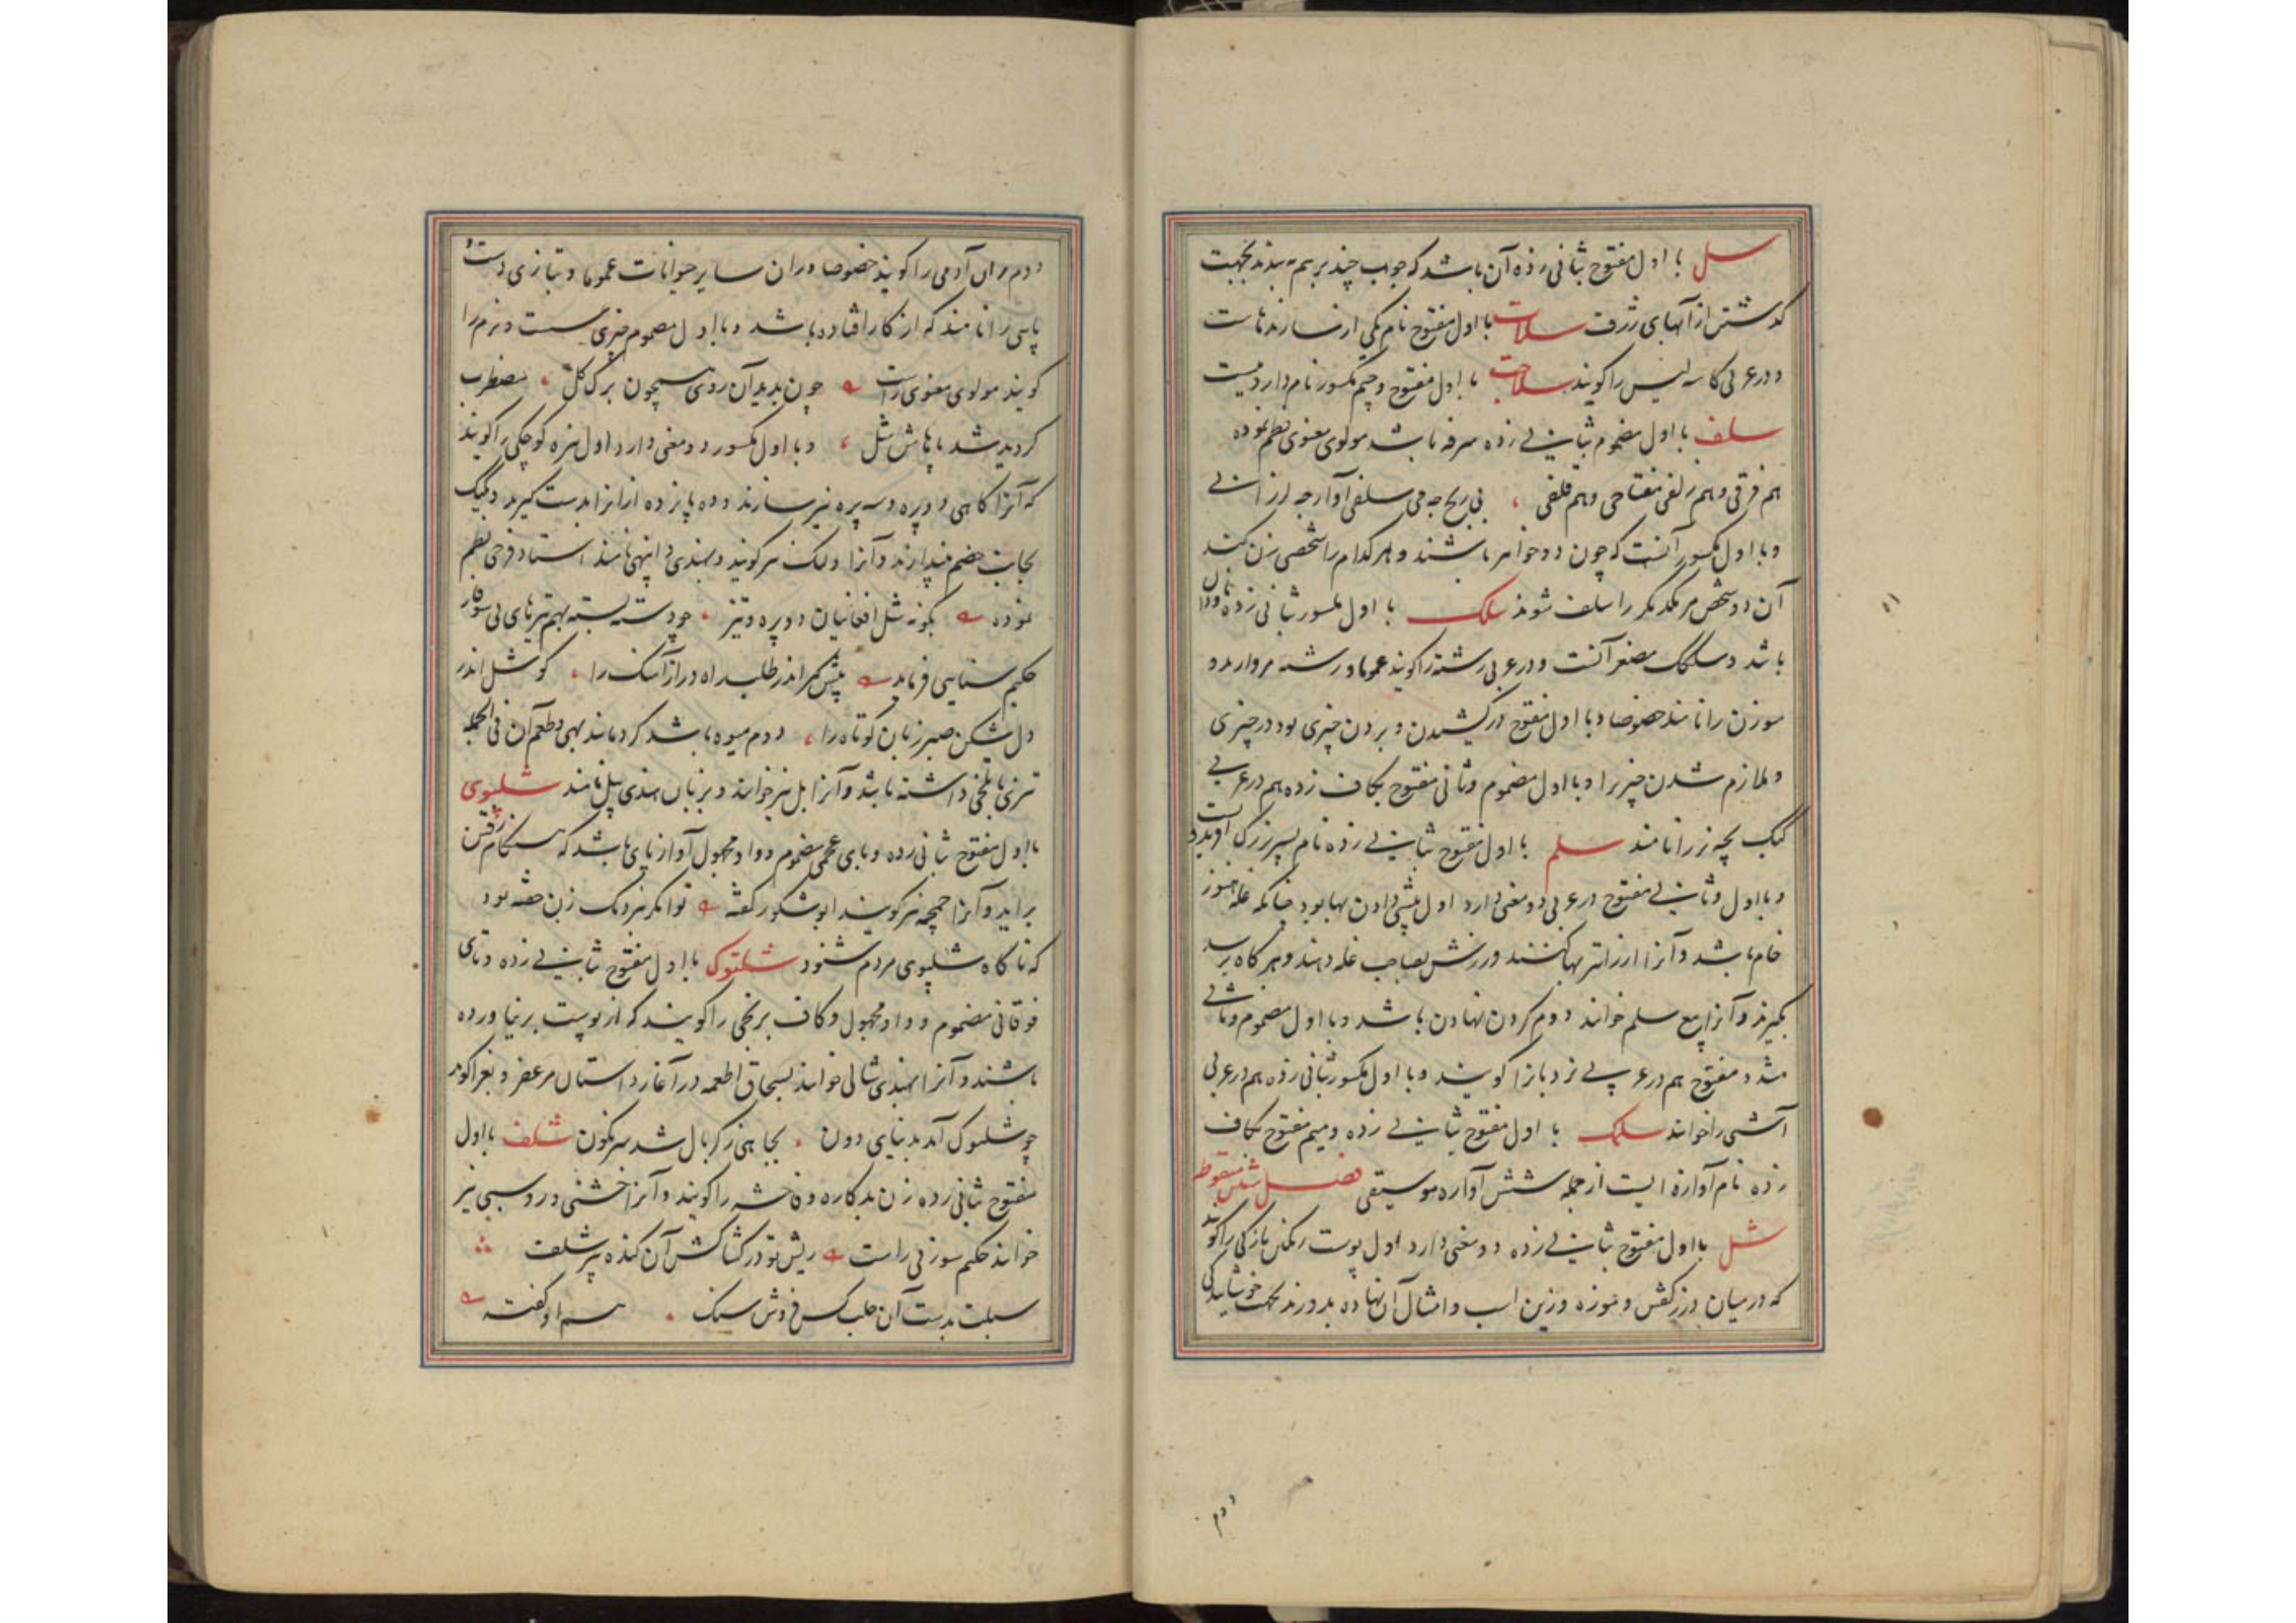 سل با اول مفتوح بثانی زده آن باشد که چوب چند بر هم به بندند بجهت
کذشتن از آبهای ژرف سلات با اول مفتوح نام یکی از سازندهاست
و در عربی کاسه لیس را کویند سلاحت با اول مفتوح و مکسور نام دارویست
سلف با اول مضموم بثانی زده سرفه باشد مولوی معنوی نظم نموده
هم فرقی و هم زلفی مفتاحی و هم قلفی بی رنج چه می سلفی آواز چه لرزانی
و با اول مکسور آنست که چون دو خواهر باشند و هر کدام را شخصی بزن کند
آن دو شخص مر یکدیکر را سلف شوند سلک با اول مکسور ثانی زده ناودان
باشد و سلکک مصغر آنست و در عربی رشته را کویند عموما و رشته مروارید و
سوزن را نامند خصوصا و با اول مفتوح در کشیدن و بردن چیزی بود در چیزی
و ملازم شدن چیزیرا و با اول مضموم و ثانی مفتوح بکاف زده هم در عربی
کبک بچه نر را نامند سلم با اول مفتوح بثانی زده نام پسر بزرک افریدونست
و با اول و ثانی مفتوح در عربی دو معنی دارد اول پیشی دادن بها بود چنانکه غله هنوز
خام باشد و آنرا ارزانتر بها کنند و زرش بصاحب غله دهند و هر کاه برسد
بکیرند و آنرا بیع سلم خوانند دوم کردن نهادن باشد و با اول مضموم و ثانی
مشدد مفتوح هم در عربی نردبانرا کویند و با اول مکسور ثانی زده هم در عربی
آشتی را خوانند سلمک با اول مفتوح بثانی زده و میم مفتوح بکاف
زده نام آوازه ایست از جمله شش آوازه موسیقی فصل شین منقوطه
شل با اول مفتوح بثانی زده دو معنی دارد اول پوست رنکین نازکی را کویند
که در میان درز کفش و موزه و زین اسب و امثال آن نهاده بدوزند بجهت خوشایندکی
دوم
دوم ران آدمی را کویند خصوصا و ران سایر حیوانات عموما و بتازی دست و
پایی را نامند که از کار افتاده باشد و با اول مضموم چیزی سست و نرم را
کویند مولوی معنوی راست چون بدید آن روی همچون برک کل مضطرب
کردید شد پاهاش شل و با اول مکسور دو معنی دارد اول نیزه کوچکی را کویند
که آنرا کاهی دو پره و سه پره نیز سازند و ده پانزده از انرا بدست کیرند و یکیک
بجانب خصم بیندازند و آنرا نیز کویند و بهندی نامند استاد فرخی نظم
نموده بکونه شل افغانیان دو پره و تیز چو دسته بسته بهم تیرهای بی سوفار
حکیم سنایی فرماید پیش کمر اندر طلب راه دراز آهنک را کو شل اندر
دل شکن صبر زبان کوتاه را دوم میوه باشد کرد مانند بهی و طعم آن فی الجمله
تیزی تلخی داشته باشد و آنرا بل نیز خوانند و بزبان هندی بیل نامند شلپوی
با اول مفتوح بثانی زده و بای عجمی مضموم و واو مجهول آواز پای باشد که هنکام رفتن
براید و آنرا نیز کویند ابو شکور کفته توانکر بنزدیک زن خفته بود
که ناکاه شلپوی مردم شنود شلتوک با اول مفتوح بثانی زده و تای
فوقانی مضموم و واو مجهول و کاف برنجی را کویند که از پوست برنیاورده
باشند و آنرا بهندی شالی خوانند بسحاق اطعمه در آغاز داستان مزعفر و بغرا کوید
چو شلتوک آمد بدنیای دون بجاهی ز کربال شد سرنکون شلف با اول
مفتوح ثانی زده زن بدکاره و فاحشه را کویند و آنرا خشنی و روسبی نیز
خوانند حکیم سوزنی راست ریش تو در کشاکش آن کنده پیر شلف
سبلت بدست آن جلب کس فروش سنک هم او کفته